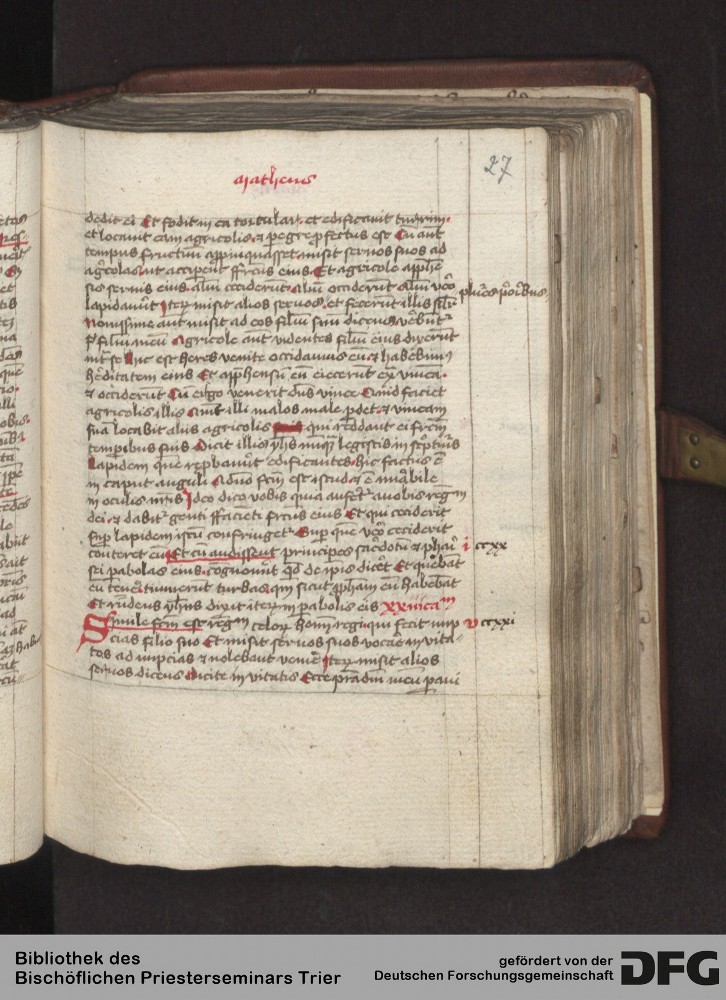 Matheus
27
dedit ei Et fodit in ea torcular et edificavit turrim
et locavit eam agricolis ⁊ pegre pfectus est Cu aut
tempus fructuu appinquasset misit servos suos ad
agcolas ut accipent fructus eius Et agricole apphe
sis servis eius aliu ceciderut aliu occiderut aliu vo
plures prioribus
lapidaverut Iteru misit alios servos et fecerut illis silr
Novissime aut misit ad eos filiu suu dicens verebunt
filiu meu Agricole aut videntes filiu eius dixerunt
int se hic est heres venite occidamus eu ⁊ habebim
heditatem eius Et apphensu eu eiecerut ex vinea
⁊ occiderut Cu ergo venerit dns vinee Quid faciet
agricolis illis Aiut illi malos male pdet ⁊ vineam
sua locabit aliis agricolis qui reddant ei frcm
tempibus suis Dicit illis yhs nuqz legistis in scpturis
Lapidem que repbaverut edificantes hic factus e
in caput anguli A dno fcm est istud ⁊ e mirabile
in oculis nris Ideo dico vobis quia auferet a vobis regnu
dei ⁊ dabit genti facieti frctus eius Et qui ceciderit
sup lapidem istu confringet Sup que vo ceciderit
conteret eu Et cu audissent principes sacdotu ⁊ phari
i ccxx
sei pabolas eius cognoverut qd de ipsis dicet Et querebat
eu tenere timuerut turbas qm sicut ppham eu habebat
Et rndens yhus dixit iteru in pabolis eis XXII
Simile fcm est regnu celor homi regi qui fecit nup
v ccxxi
cias filio suo Et misit servos suos vocare invita
tos ad nupcias ⁊ nolebant venire Iteru misit alios
servos dicens Dicite invitatis Ecce prandiu meu paui
Bibliothek des
Bischöflichen Priesterseminars Trier
gefördert von der
Deutschen Forschungsgemeinschaft
DFG